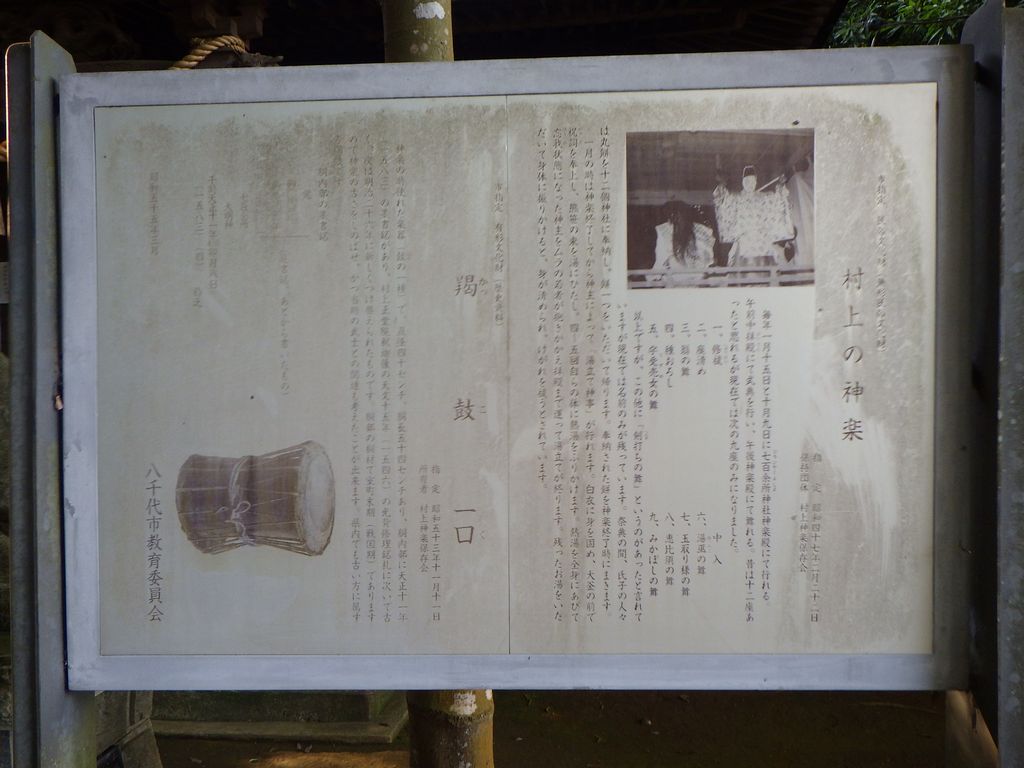 市指定 民俗文化財(無形民俗文化財)
村上の神楽
指定 昭和四十七年二月二十二日
保持団体 村上神楽保存会
毎年一月十五日と十月九日に七百余所神社神楽殿にて行れる
午前中拝殿にて式典を行い、午後神楽殿にて舞れる。昔は十二座あ
ったと思れるが現在では次の九座のみになりました。
一、修祓
二、座清め
三、翁の舞
四、種おろし
五、宇受売女の舞
中入
六、湯風の舞
七、玉取り様の舞
八、恵比須の舞
九、みかぼしの舞
以上ですが、この他に「剣打もの舞」というのがあったと言れて
いますが現在では名前のみが残っています。祭典の間、氏子の人々
は丸餅を十二個神社に奉納し、餅一つをいただいて帰ります。奉納された餅を神楽終了時にまきます。
一月の時は神楽終了してから神主によって「湯立て神事」が行れます。白衣に身を固め、大釜の前で
祝詞を奉上し、熊笹の束を湯にひたし、四〜五回自らの体に熱湯をふりかけます。熱湯を全身にあびて
忘我状態になった神主をムラの若者が抱きかかえ拝殿まで運って湯立てが終ります。残ったお湯をいた
だいて身体に振りかけると、身が清められ、けがれを祓うとされています。
市指定 有形文化財(歴史資料)
羯鼓 一口
かっ こ く
指定 昭和五十三年十一月十一日
所有者 村上神楽保存会
神楽の時使れた楽器(鼓の一種)で、直径四十センチ、胴長五十四センチあり、胴内部に天正十一年
(一五八三)の墨書銘があり、村上正覚院釈迦像の天文十五年(一五四六)の光背修理銘札に次いで古
く、皮は明治二十六年に新しくつけ替えられたものです。胴部の桐材で室町末期(戦国期)であります
ので神楽の古さをしのばせ、かつ当時の武士との関連も考えたことが出来ます。県内でも古い方に属す
胴内部の墨書銘
大明神
干時天正十一年
(一五八三)
昭和五十五年三月
八千代市教育委員会